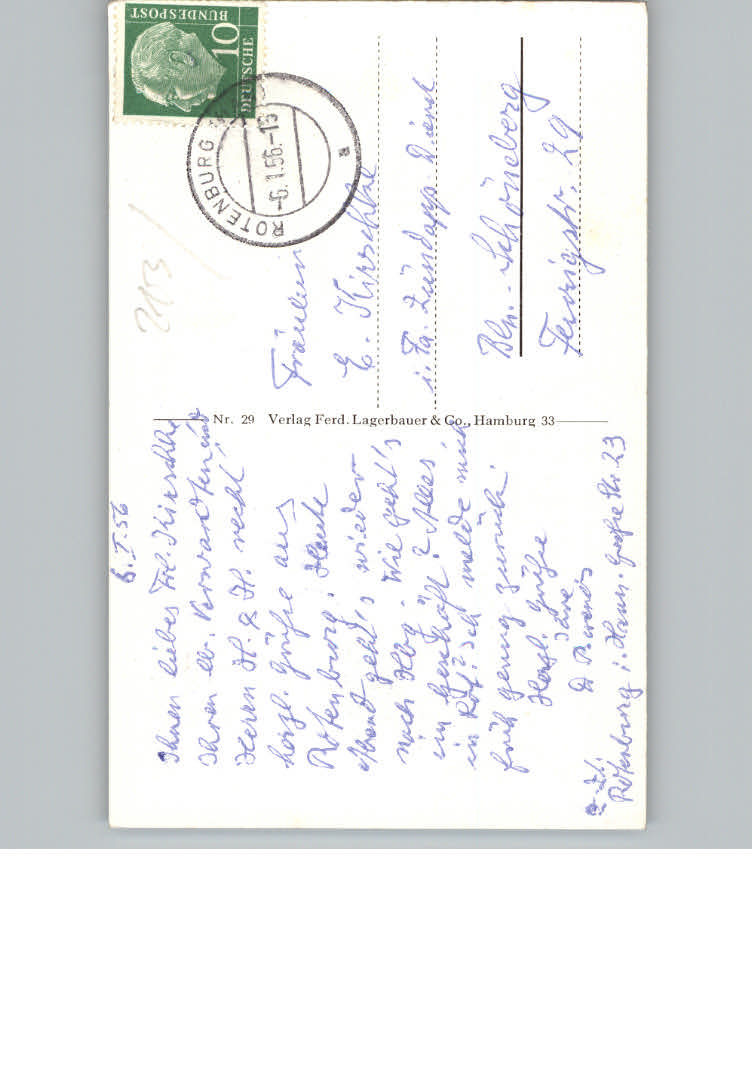 6.I.56
Ihnen liebes Frl. Kirschke
Ihren lb. Verwandten und
Herrn H. & H. recht
herzl. Grüße aus
Rotenburg. Heute
Abend geht's wieder
nach Hbg. Wie geht's
im Geschäft? Alles
in ? Ich melde mich
früh genug zurück.
Herzl. Grüße
Ihre
z. Zt.
Rotenburg i. Hann. Große Str. 23
Nr. 29 Verlag Ferd. Lagerbauer & Co., Hamburg 33
DEUTSCHE
BUNDESPOST
10
ROTENBURG
-6.1.56.-15
a
Fräulein
E. Kirschke
i. Fa. Zündapp-Dienst
Bln.-Schöneberg
29